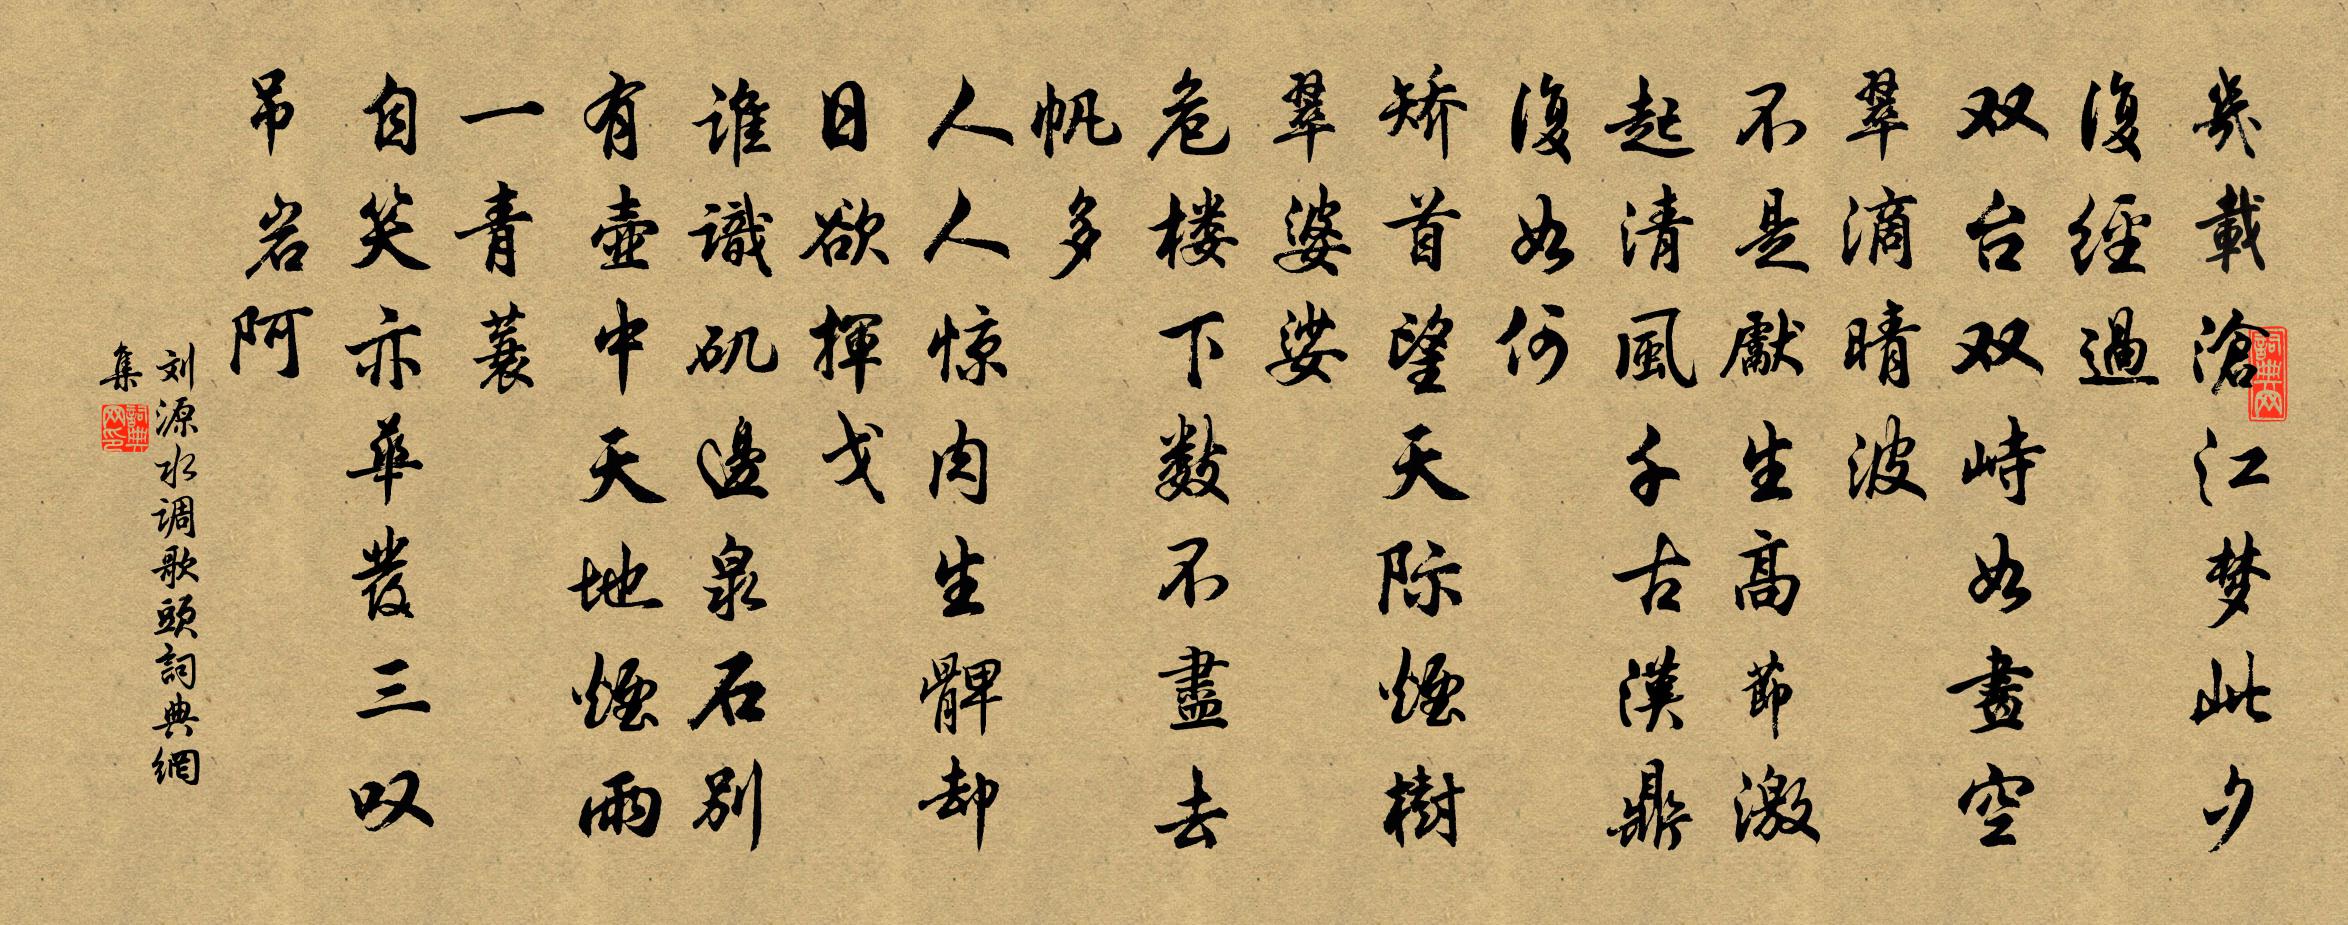 幾載滄江梦此夕
復經過
双台双峙如畫空
翠滴晴波
不是獻生高節激
起清風千古漢鼎
復如何
矫首望天际煙樹
翠婆娑
危楼下数不盡去
帆多
人人惊肉生髀却
日欲揮戈
谁識矶邊泉石别
有壶中天地煙雨
一青蓑
自笑亦華发三叹
吊岩阿
刘源水调歌頭詞典網
集
詞典网
詞典网印